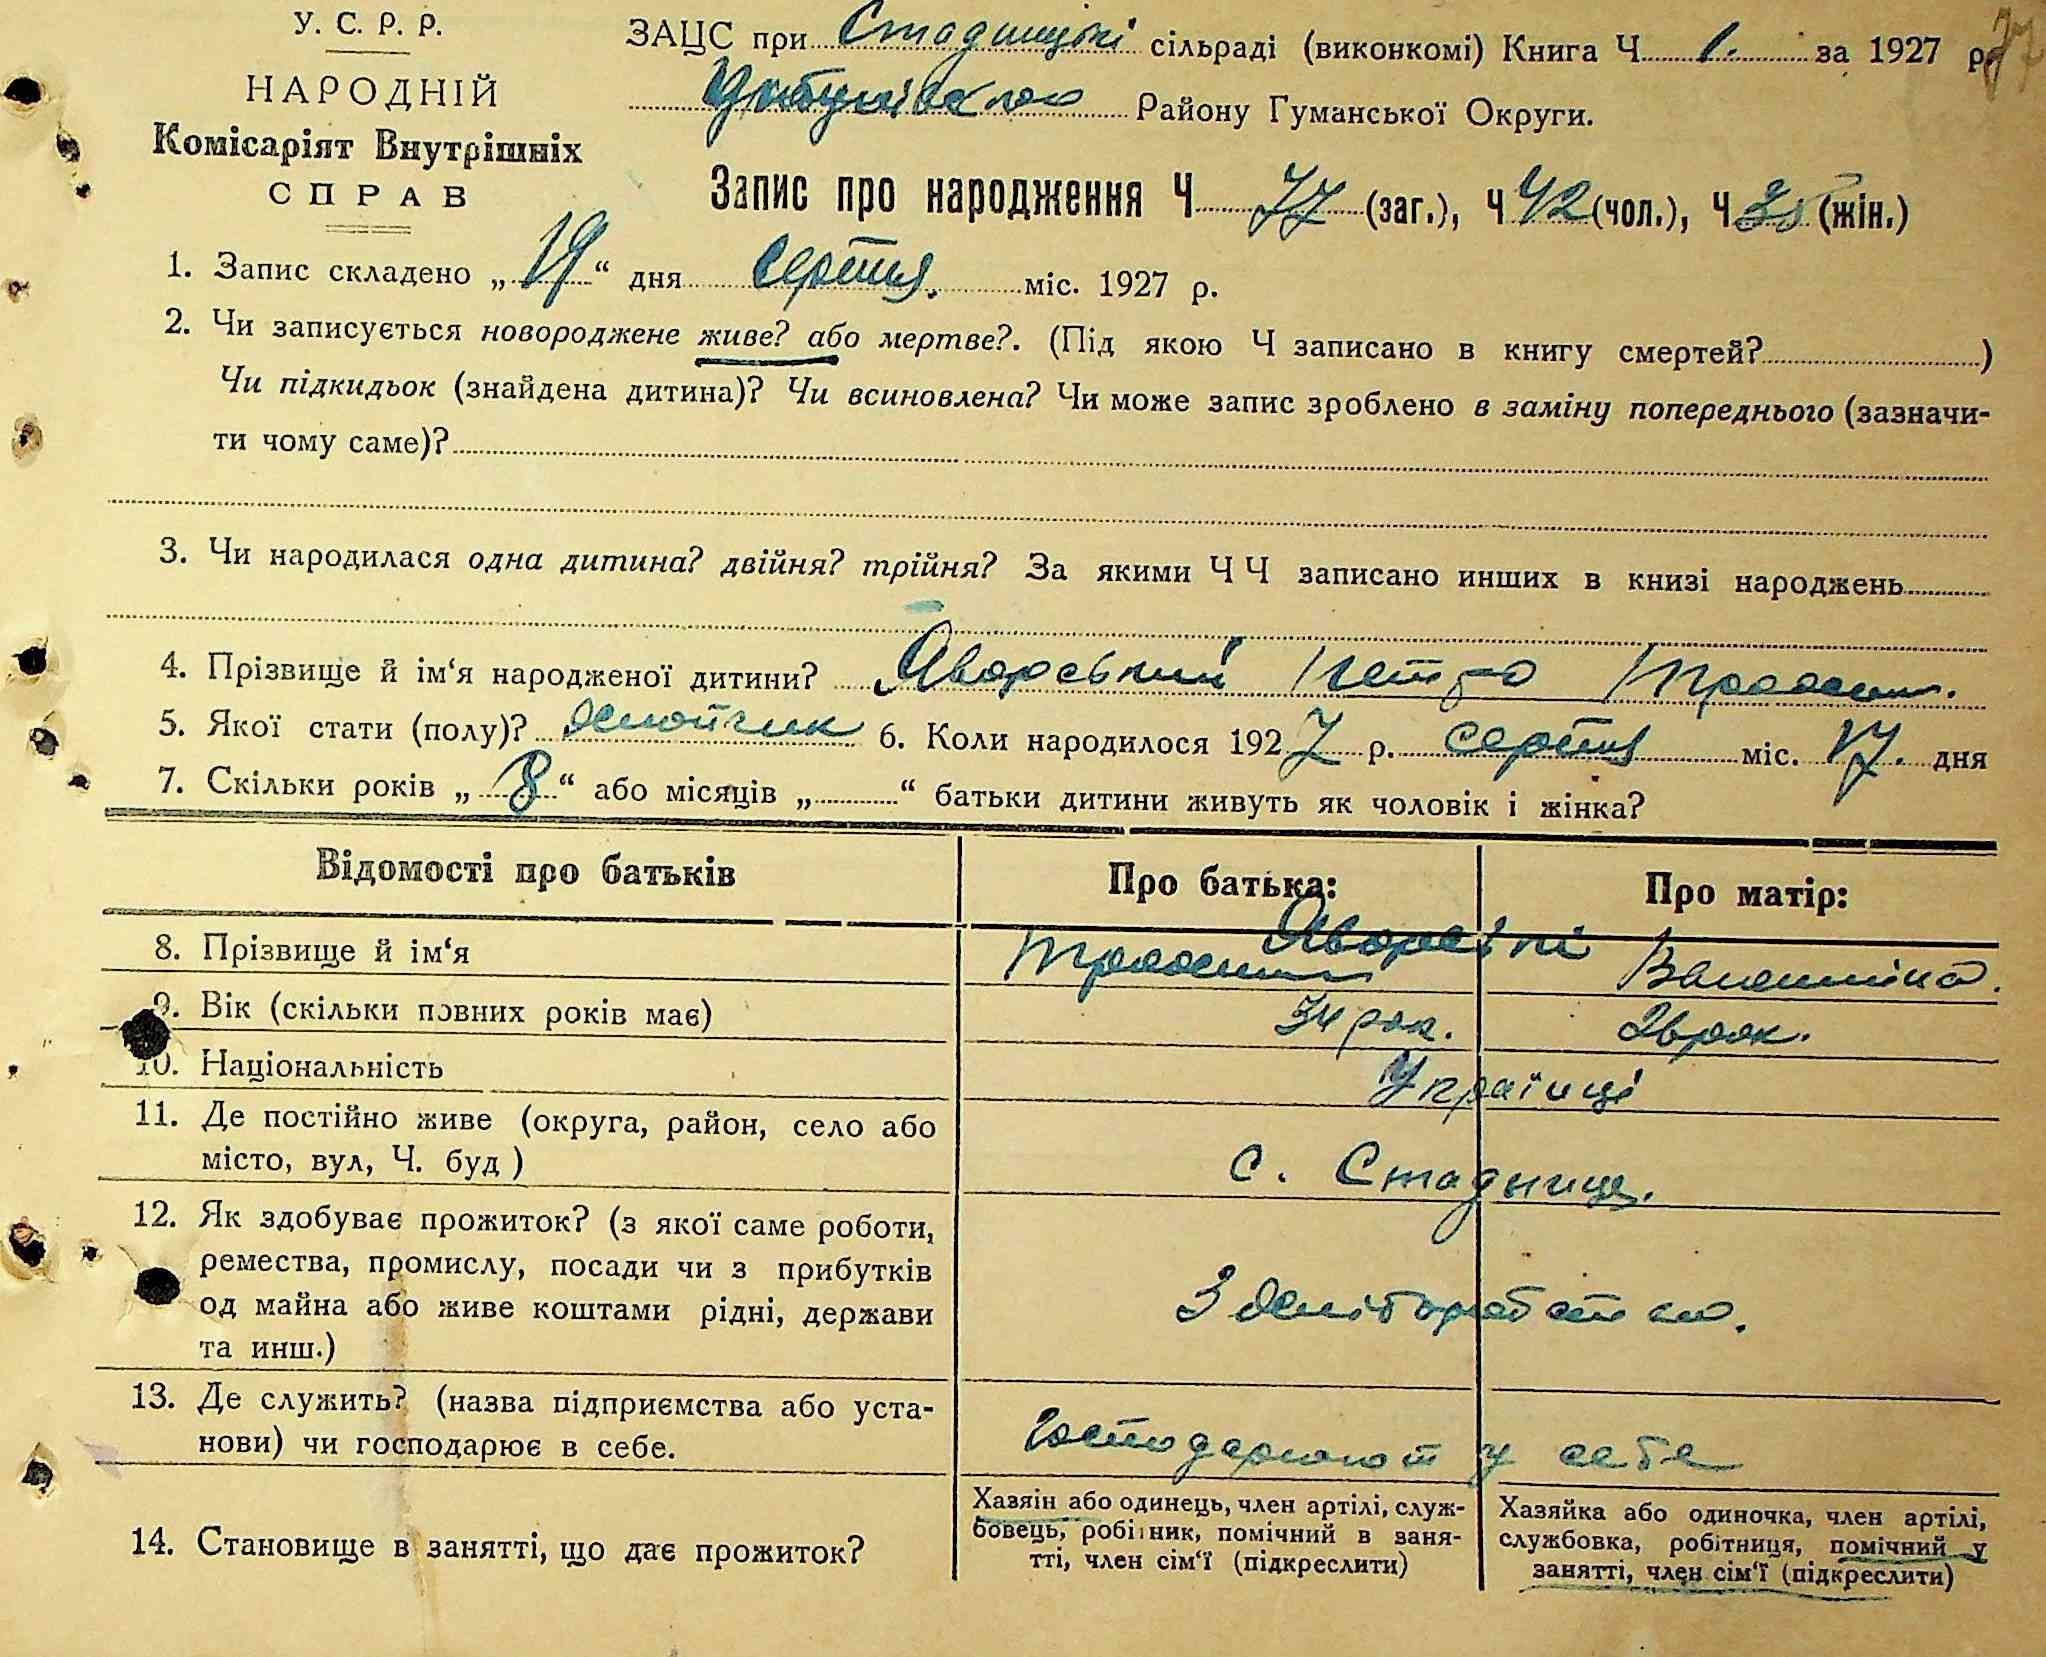 У. С. Р. Р.
НАРОДНІЙ
Комісаріят Внутрішніх
СПРАВ
ЗАЦС при Стадницькі сільраді (виконкомі) Книга Ч 1. за 1927 р.
77
Району Гуманської Округи.
Запис про народження Ч 77 (заг.), Ч 42 (чол.), Ч 35 (жін.)
1. Запис складено „19“ дня серпня. міс. 1927 р.
2. Чи записується новороджене живе? або мертве?. (Під якою Ч записано в книгу смертей? )
Чи підкидьок (знайдена дитина)? Чи всиновлена? Чи може запис зроблено в заміну попереднього (зазначи-
ти чому саме)?
3. Чи народилася одна дитина? двійня? трійня? За якими Ч Ч записано инших в книзі народжень
4. Прізвище й ім‘я народженої дитини? Яворський Петро
5. Якої стати (полу)? хлопчик 6. Коли народилося 1927 р. серпня міс. 17. дня
7. Скільки років „8“ або місяців „ “ батьки дитини живуть як чоловік і жінка?
Відомості про батьків
Про батька:
Про матір:
8. Прізвище й ім‘я
Яворські
Валентина.
9. Вік (скільки повних років має)
34 рок.
26 рок.
10. Національність
Українці
11. Де постійно живе (округа, район, село або
місто, вул, Ч. буд )
с. Стадниця.
12. Як здобуває прожиток? (з якої саме роботи,
ремества, промислу, посади чи з прибутків
од майна або живе коштами рідні, держави
та инш.)
З хліборобства.
13. Де служить? (назва підприємства або уста-
нови) чи господарює в себе.
Господарюют у себе
14. Становище в занятті, що дає прожиток?
Хазяін або одинець, член артілі, служ-
бовець, робітник, помічний в заня-
тті, член сім‘ї (підкреслити)
Хазяйка або одиночка, член артілі,
службовка, робітниця, помічний у
занятті, член сім‘ї (підкреслити)